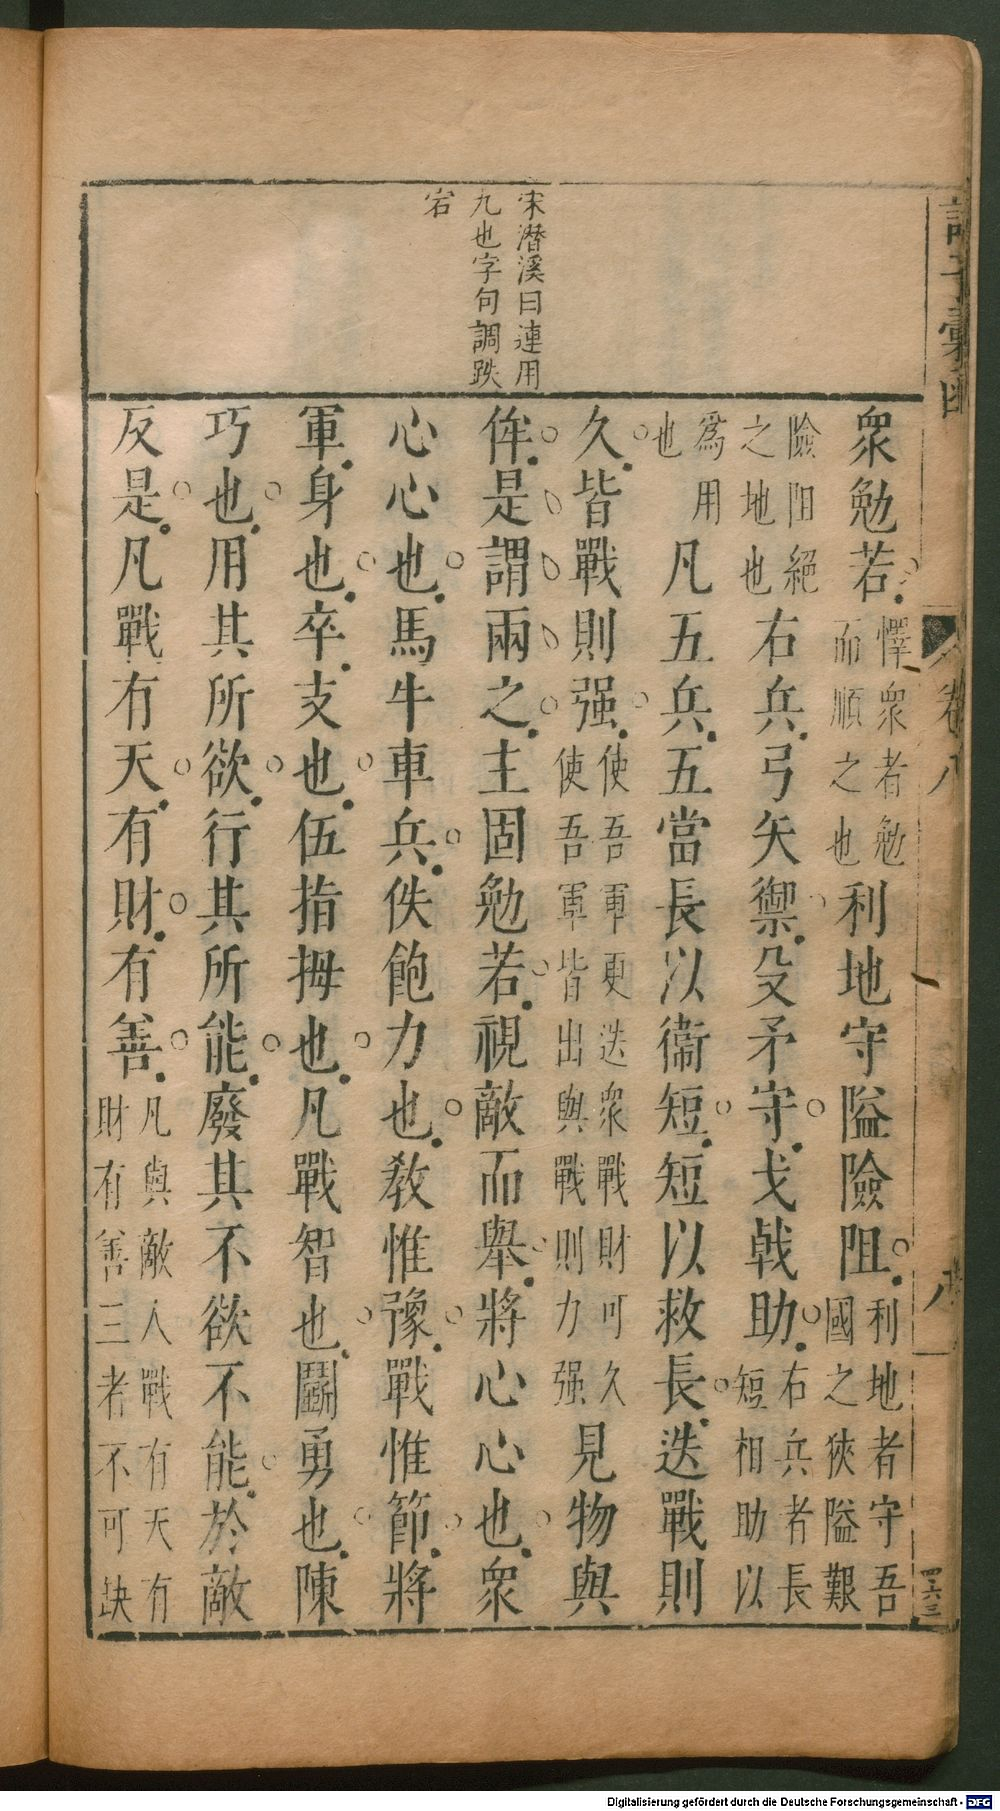 宋潛溪曰連用
九也字句調跌
宕
衆勉若懌衆者勉而順之也利地守隘險阻利地者守吾國之狹隘艱
險阻絕之地也右兵弓矢禦殳矛守戈戟助右兵者長短相助以
爲用也凡五兵五當長以衞短短以救長迭戰則
久皆戰則强使吾軍更迭衆戰財可久使吾軍皆出與戰則力强見物與
侔是謂兩之主固勉若視敵而舉將心心也衆
心心也馬牛車兵佚飽力也教惟豫戰惟節將
軍身也卒支也伍指拇也凡戰智也鬭勇也陳
巧也用其所欲行其所能廢其不欲不能於敵
反是凡戰有天有財有善凡與敵人戰有天有財有善三者不可缺
卷八
四六三
Digitalisierung gefördert durch die Deutsche Forschungsgemeinschaft - DFG